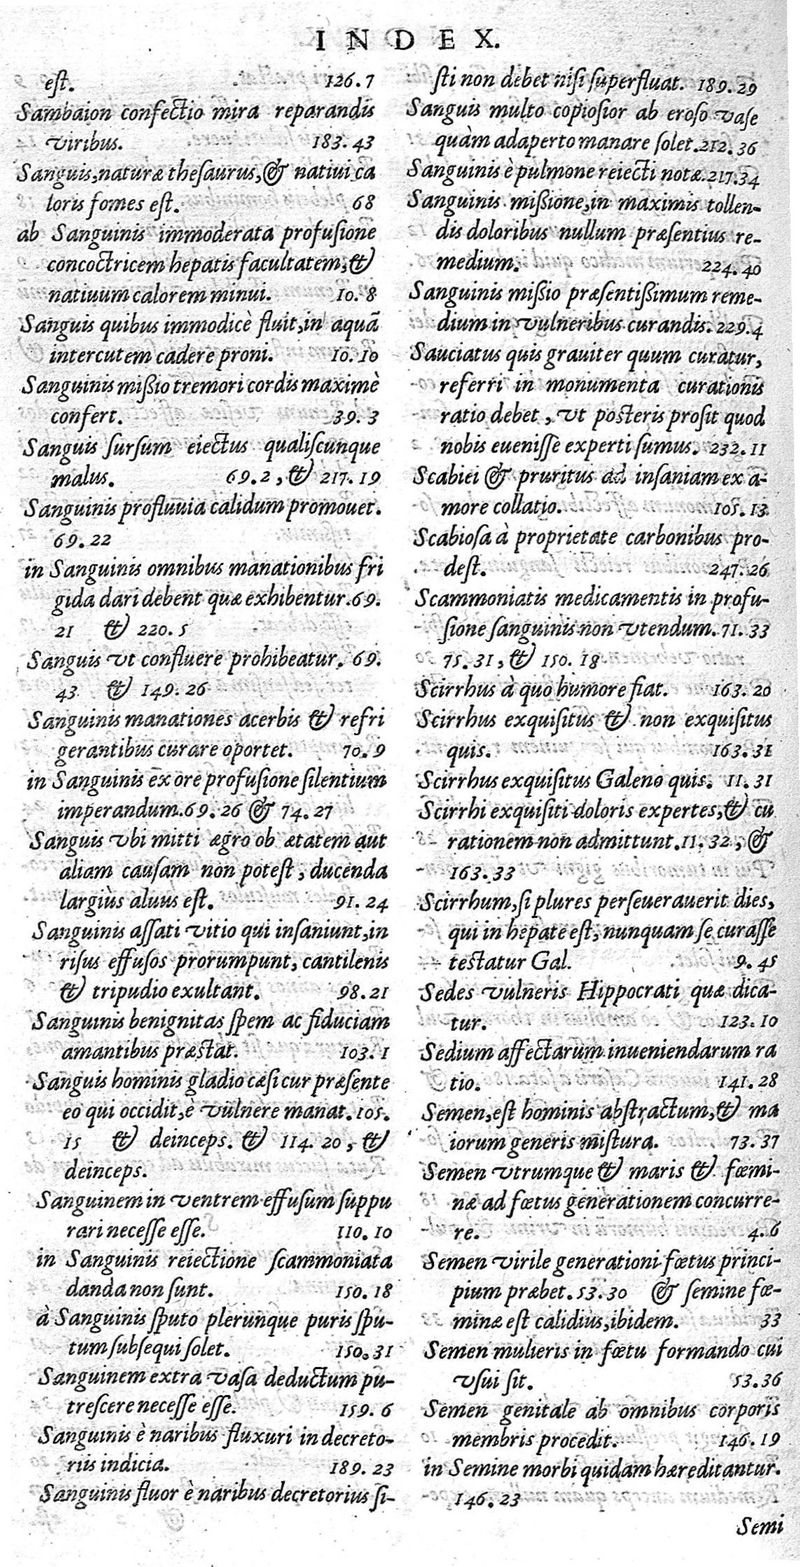 INDEX.
est. 126.7
Sambaion confectio mira reparandis
viribus. 183.43
Sanguis, naturæ thesaurus, & natiui ca
loris fomes est. 68
ab Sanguinis immoderata profusione
concoctricem hepatis facultatem, &
natiuum calorem minui. 10.8
Sanguis quibus immodicè fluit, in aquã
intercutem cadere proni. 10.10
Sanguinis missio tremori cordis maximè
confert. 39.3
Sanguis sursum eiectus qualiscunque
malus. 69.2, & 217.19
Sanguinis profluuia calidum promouet.
69.22
in Sanguinis omnibus manationibus fri
gida dari debent quæ exhibentur. 69.
21 & 220.5
Sanguis vt confluere prohibeatur. 69.
43 & 149.26
Sanguinis manationes acerbis & refri
gerantibus curare oportet. 70.9
in Sanguinis ex ore profusione silentium
imperandum. 69.26 & 74.27
Sanguis vbi mitti ægro ob ætatem aut
aliam causam non potest, ducenda
largiùs aluus est. 91.24
Sanguinis assati vitio qui insaniunt, in
risus effusos prorumpunt, cantilenis
& tripudio exultant. 98.21
Sanguinis benignitas spem ac fiduciam
amantibus præstat. 103.1
Sanguis hominis gladio cæsi cur præsente
eo qui occidit, è vulnere manat. 105.
15 & deinceps. & 114.20, &
deinceps.
Sanguinem in ventrem effusum suppu
rari necesse esse. 110.10
in Sanguinis reiectione scammoniata
danda non sunt. 150.18
à Sanguinis sputo plerunque puris spu-
tum subsequi solet. 150.31
Sanguinem extra vasa deductum pu-
trescere necesse esse. 159.6
Sanguinis è naribus fluxuri in decreto-
riis indicia. 189.23
Sanguinis fluor è naribus decretorius si-
sti non debet nisi superfluat. 189.29
Sanguis multo copiosior ab eroso vase
quàm adaperto manare solet. 212.36
Sanguinis è pulmone reiecti notæ. 217.34
Sanguinis missione, in maximis tollen-
dis doloribus nullum præsentius re-
medium. 224.40
Sanguinis missio præsentissimum reme-
dium in vulneribus curandis. 229.4
Sauciatus quis grauiter quum curatur,
referri in monumenta curationis
ratio debet, vt posteris prosit quod
nobis euenisse experti sumus. 232.11
Scabiei & pruritus ad insaniam ex a-
more collatio. 105.13
Scabiosa à proprietate carbonibus pro-
dest. 247.26
Scammoniatis medicamentis in profu-
sione sanguinis non vtendum. 71.33
75.31, & 150.18
Scirrhus à quo humore fiat. 163.20
Scirrhus exquisitus & non exquisitus
quis. 163.31
Scirrhus exquisitus Galeno quis. 11.31
Scirrhi exquisiti doloris expertes, & cu
rationem non admittunt. 11.32, &
163.33
Scirrhum, si plures perseuerauerit dies,
qui in hepate est, nunquam se curasse
testatur Gal. 9.45
Sedes vulneris Hippocrati quæ dica-
tur. 123.10
Sedium affectarum inueniendarum ra
tio. 141.28
Semen, est hominis abstractum, & ma
iorum generis mistura. 73.37
Semen vtrumque & maris & fœmi-
næ ad fœtus generationem concurre-
re. 4.6
Semen virile generationi fœtus princi-
pium præbet. 53.30 & semine fœ-
minæ est calidius, ibidem. 33
Semen mulieris in fœtu formando cui
vsui sit. 53.36
Semen genitale ab omnibus corporis
membris procedit. 146.19
in Semine morbi quidam hæreditantur.
146.23
Semi